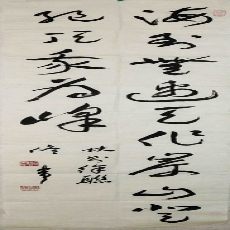 海到無邊天作岸山登
絕頂我為峰
林則徐聯